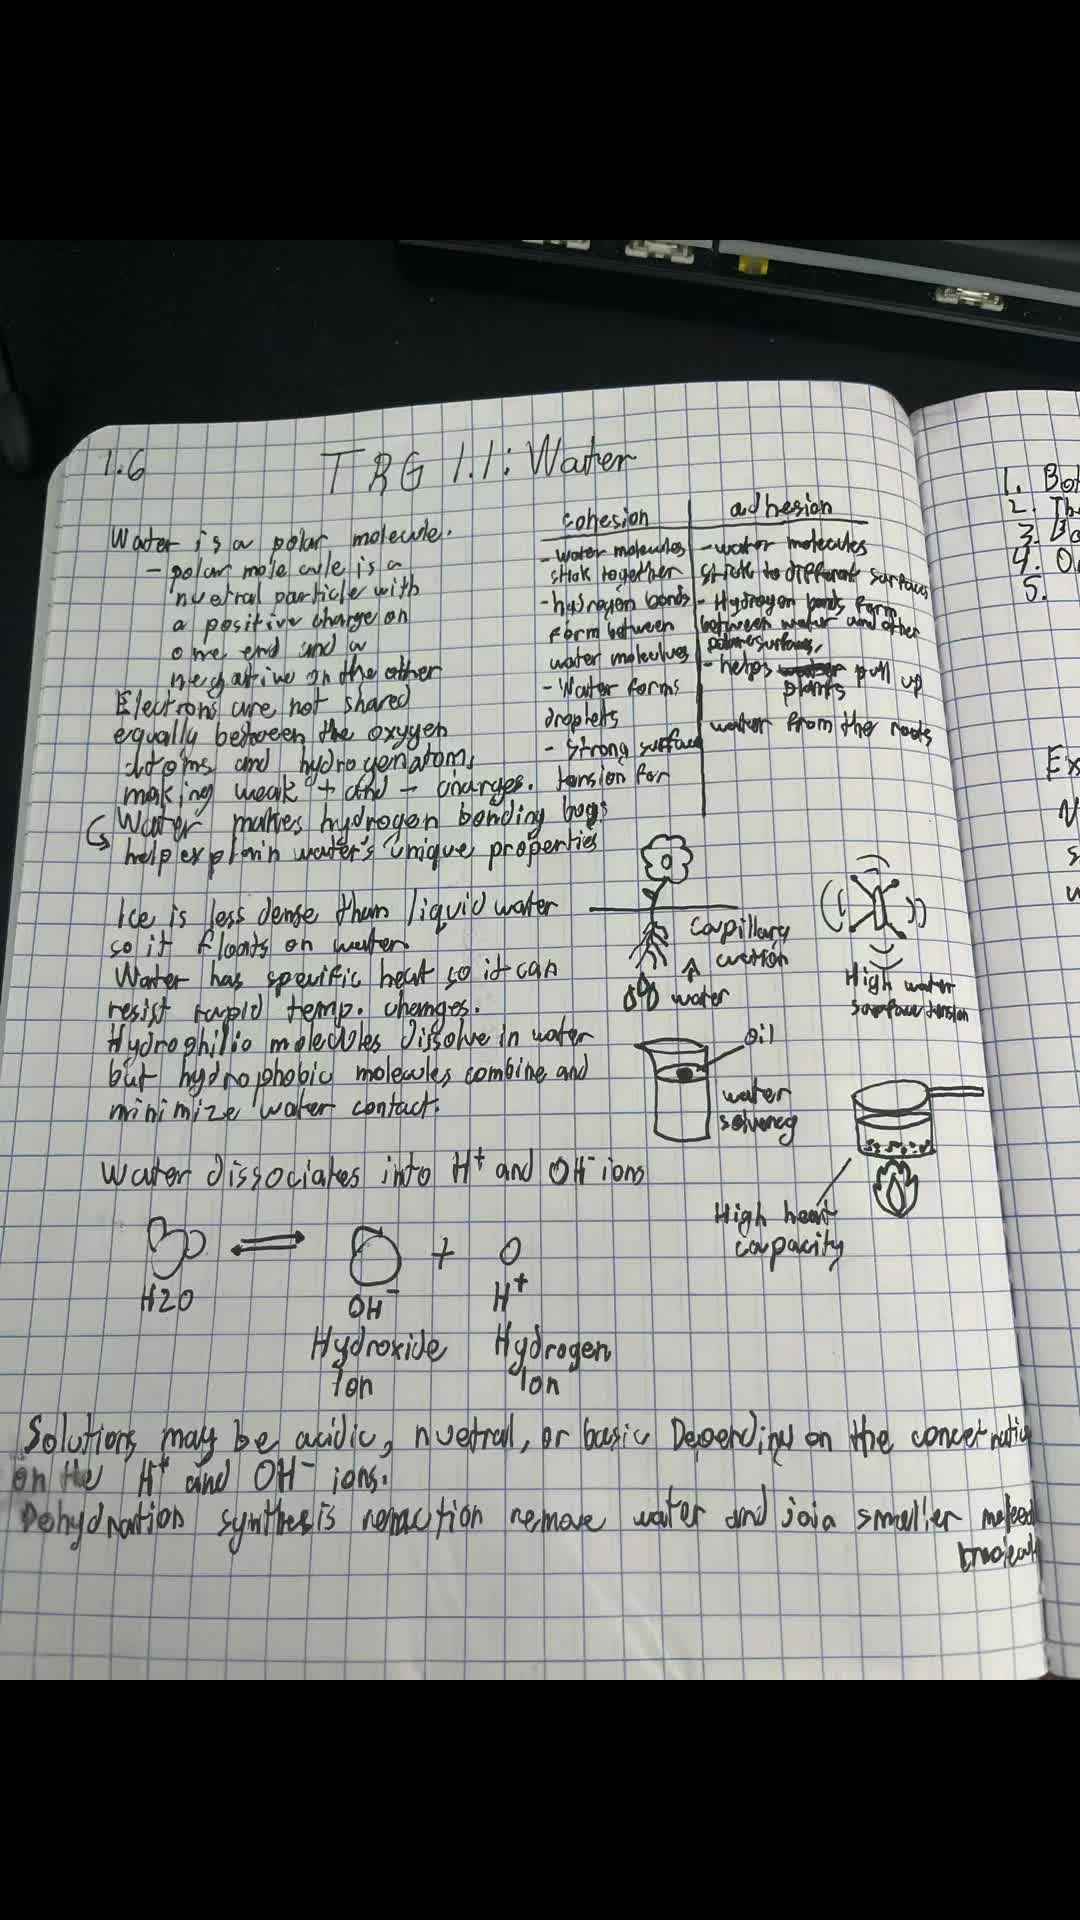 1.6
TRG 1.1: Water
Water is a polar molecule.
- polar mole cule is a
nuetral particle with
a positive charge on
one end and a
negative on the other
Electrons are not shared
equally between the oxygen
atoms and hydrogen atoms
making weak + and - charges.
Water makes hydrogen bonding
help explain water's unique properties
Ice is less dense than liquid water
so it floats on water
Water has specific heat so it can
resist rapid temp. changes.
Hydrophilic molecules dissolve in water
but hydrophobic molecules combine and
minimize water contact.
cohesion
- water molecules
stick together
- hydrogen bonds
form between
water molecules
- Water forms
droplets
- strong surface
tension for
bugs
adhesion
- water molecules
stick to different surfaces
- Hydrogen bonds form
between water and other
polar surfaces,
- helps pull up
plants
water from the roots
capillary
action
water
High water
surface tension
oil
water
solvency
High heat
capacity
Water dissociates into H+ and OH- ions
H2O
+
OH-
Hydroxide
Ion
H+
Hydrogen
Ion
Solutions may be acidic, nuetral, or basic Depending on the
on the H+ and OH- ions.
Dehydration synthesis reaction remove water and join smaller
1. Bot
2. The
3.
4.
5.
Ex